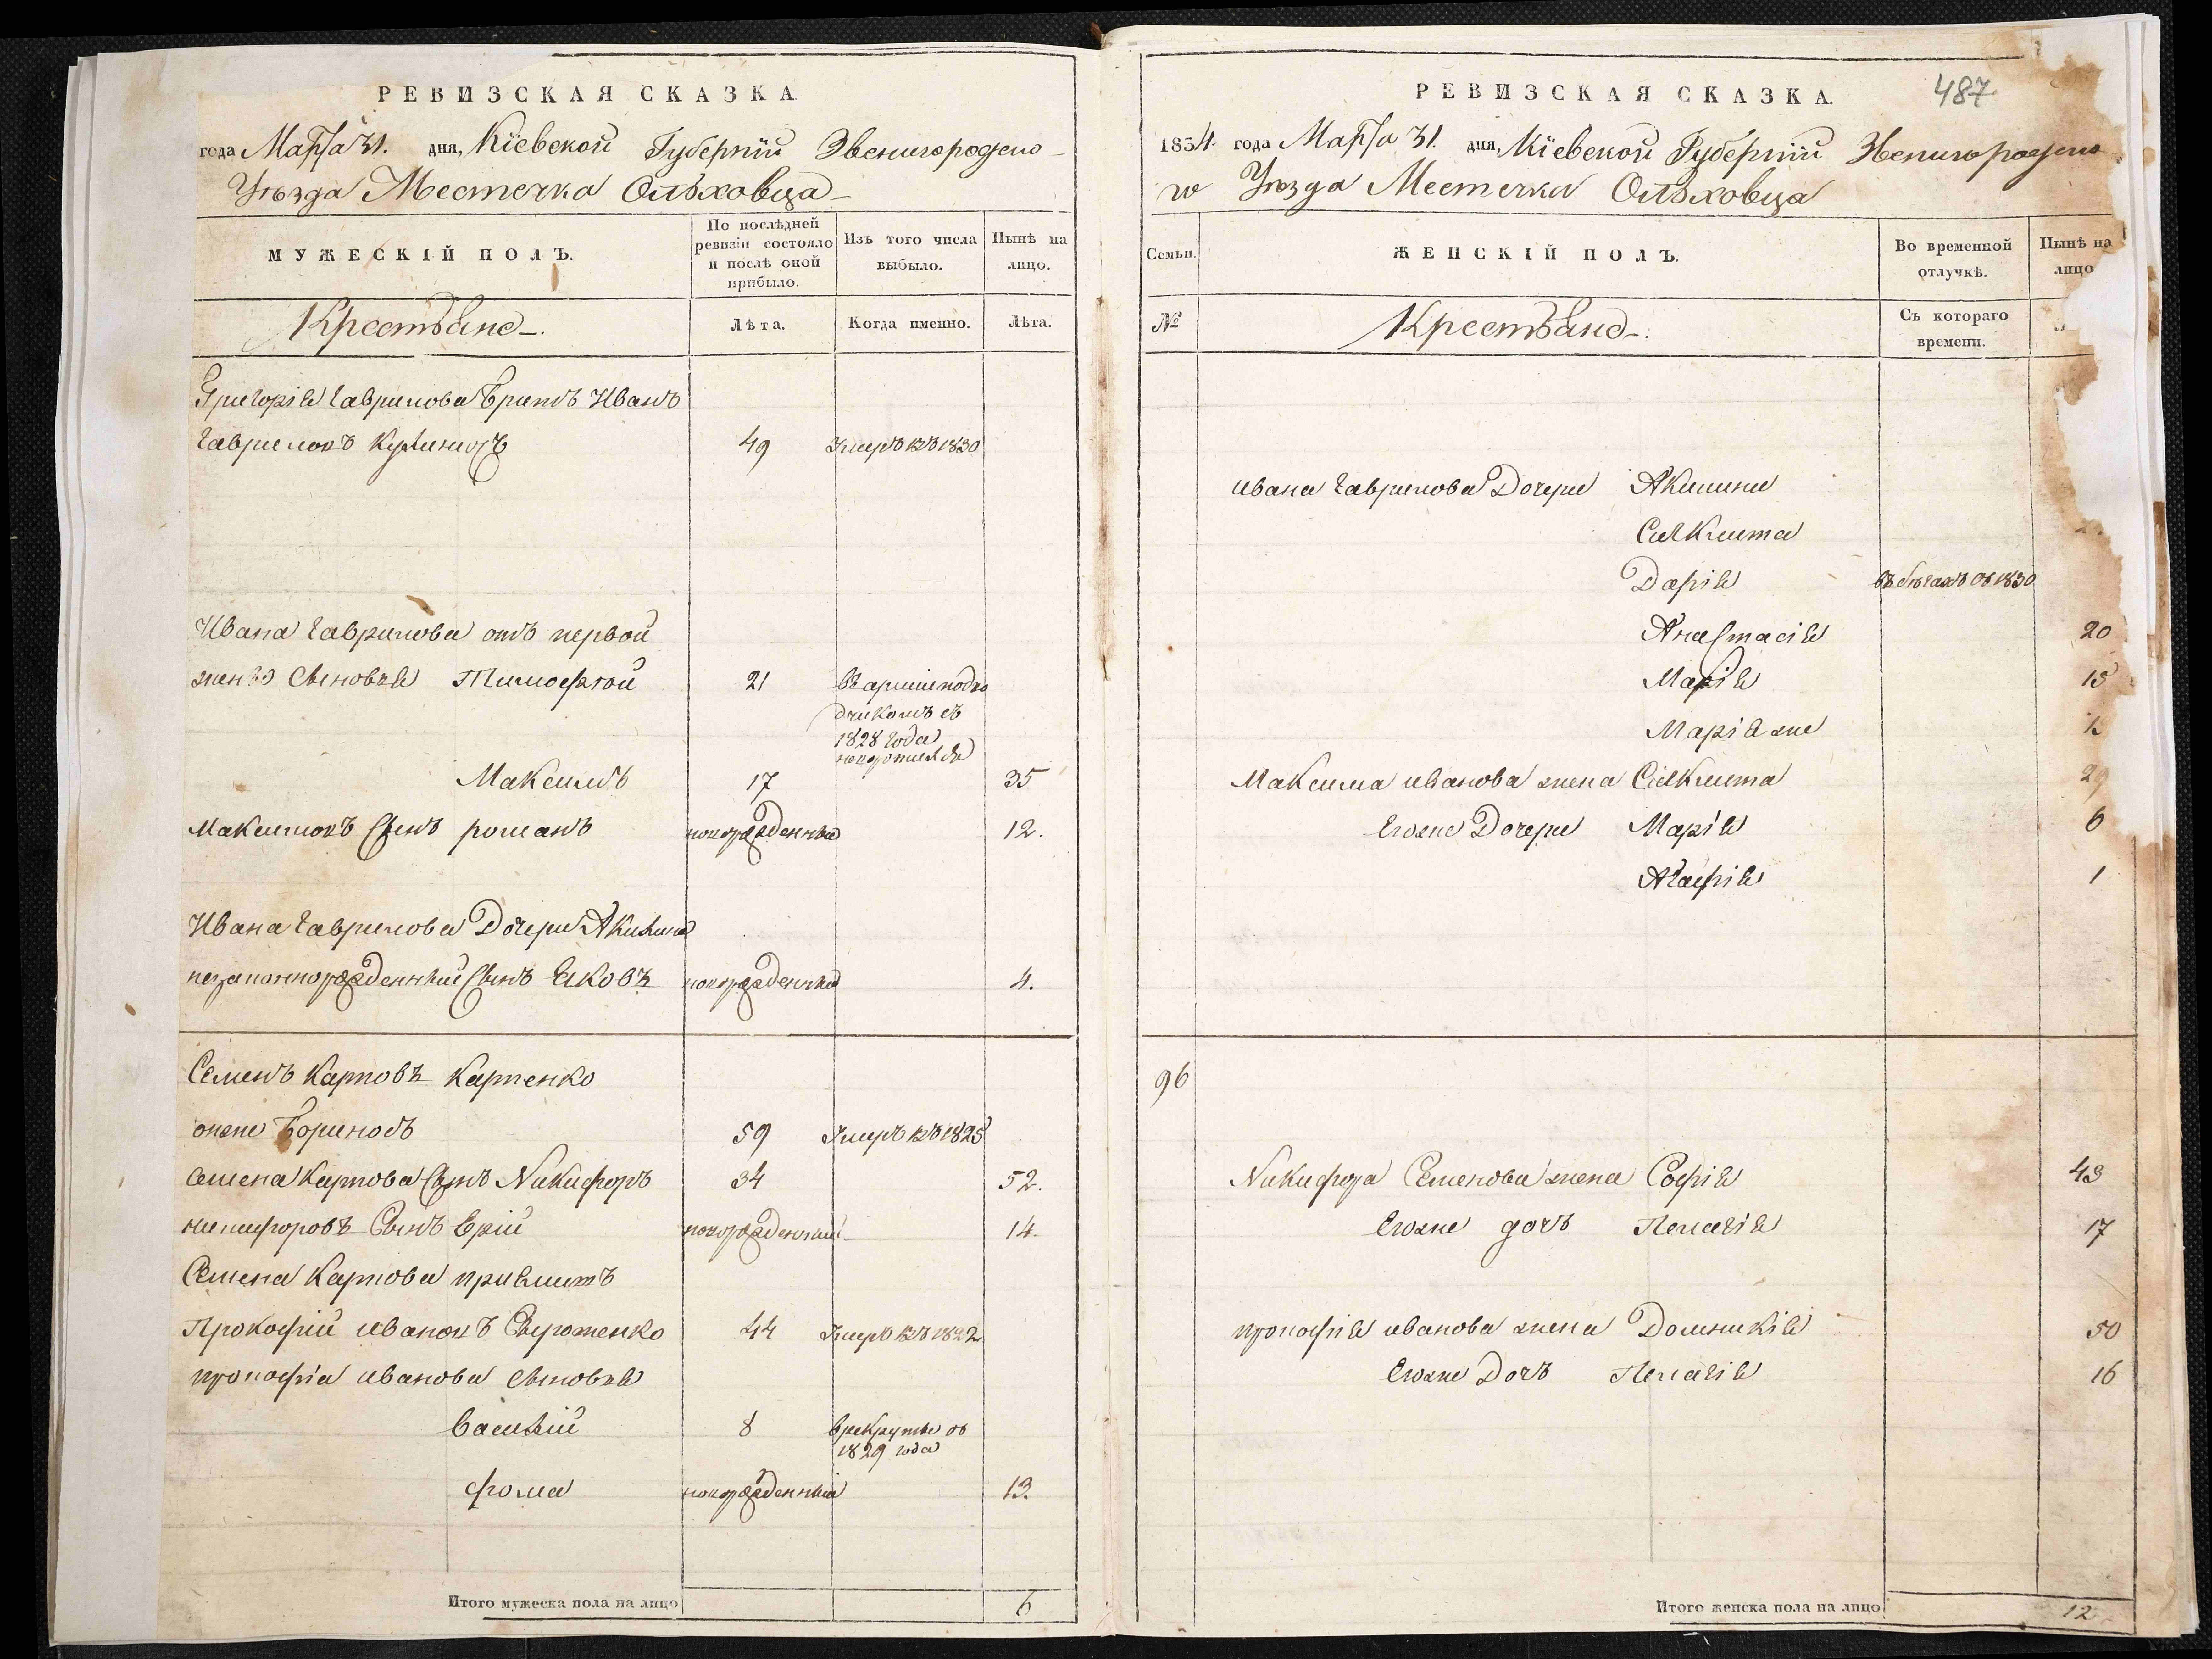 РЕВИЗСКАЯ СКАЗКА.
года Марта 31. дня, Кіевской Губерніи Звенигородско-
Уѣзда Местечка Ольховца
МУЖЕСКІЙ ПОЛЪ.
По послѣдней ревизіи состояло и послѣ оной прибыло.
Изъ того числа выбыло.
Нынѣ на лицо.
Крестьяне
Лѣта.
Когда именно.
Лѣта.
Григорія Гаврилова братъ Иванъ
Гавриловъ 49 Умеръ въ 1830
Ивана Гаврилова отъ первой
жены Сыновья Тимофей 21
1828 года
Максимъ 17 35
Максимовъ Сынъ романъ новорожденный 12.
Ивана Гаврилова Дочери Акилины
незаконнорожденный Сынъ Яковъ новорожденный 4.
Семенъ Карповъ Карпенко
онже 59 Умеръ въ 1825
Семена Карпова Сынъ Никифоръ 34 52.
никифоровъ Сынъ новорожденный 14.
Семена Карпова приймитъ
Прокофій ивановъ 44 Умеръ въ 1822
прокофія иванова сыновья
Василій 8 в рекруты въ
1829 года
фома новорожденный 13.
Итого мужеска пола на лицо 6
РЕВИЗСКАЯ СКАЗКА.
487
1834 года Марта 31. дня, Кіевской Губерніи Звенигородско
го Уѣзда Местечка Ольховца
Семьи.
ЖЕНСКІЙ ПОЛЪ.
Во временной отлучкѣ.
Нынѣ на лицо
№
Крестьяне
Съ котораго времени.
ивана Гаврилова Дочери Акилина
Дарія въ бегахъ съ 1830
Анастасія 20
Марія 15
Марія же
Максима иванова жена 29
Егоже Дочери Марія 6
Агафія 1
96
Никифора Семенова жена Софія 43
Егоже дочь Пелагія 17
прокофія иванова жена Домникія 50
Егоже Дочь Пелагія 16
Итого женска пола на лицо 12